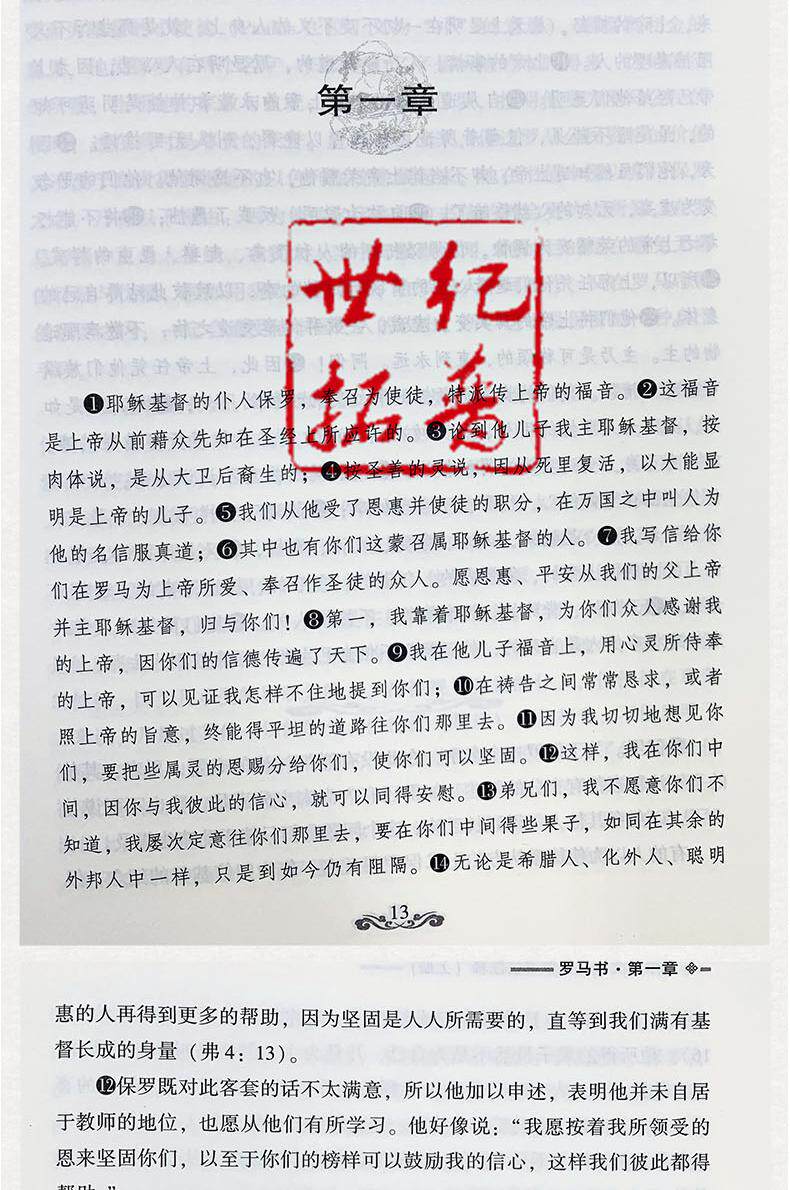 第一章
世纪
拓普
❶耶稣基督的仆人保罗，奉召为使徒，特派传上帝的福音。❷这福音
是上帝从前藉众先知在圣经上所应许的。❸论到他儿子我主耶稣基督，按
肉体说，是从大卫后裔生的；❹按圣善的灵说，因从死里复活，以大能显
明是上帝的儿子。❺我们从他受了恩惠并使徒的职分，在万国之中叫人为
他的名信服真道；❻其中也有你们这蒙召属耶稣基督的人。❼我写信给你
们在罗马为上帝所爱、奉召作圣徒的众人。愿恩惠、平安从我们的父上帝
并主耶稣基督，归与你们！❽第一，我靠着耶稣基督，为你们众人感谢我
的上帝，因你们的信德传遍了天下。❾我在他儿子福音上，用心灵所侍奉
的上帝，可以见证我怎样不住地提到你们；❿在祷告之间常常恳求，或者
照上帝的旨意，终能得平坦的道路往你们那里去。⓫因为我切切地想见你
们，要把些属灵的恩赐分给你们，使你们可以坚固。⓬这样，我在你们中
间，因你与我彼此的信心，就可以同得安慰。⓭弟兄们，我不愿意你们不
知道，我屡次定意往你们那里去，要在你们中间得些果子，如同在其余的
外邦人中一样，只是到如今仍有阻隔。⓮无论是希腊人、化外人、聪明
13
罗马书·第一章
惠的人再得到更多的帮助，因为坚固是人人所需要的，直等到我们满有基
督长成的身量（弗4：13）。
⓬保罗既对此客套的话不太满意，所以他加以申述，表明他并未自居
于教师的地位，也愿从他们有所学习。他好像说：“我愿按着我所领受的
恩来坚固你们，以至于你们的榜样可以鼓励我的信心，这样我们彼此都得